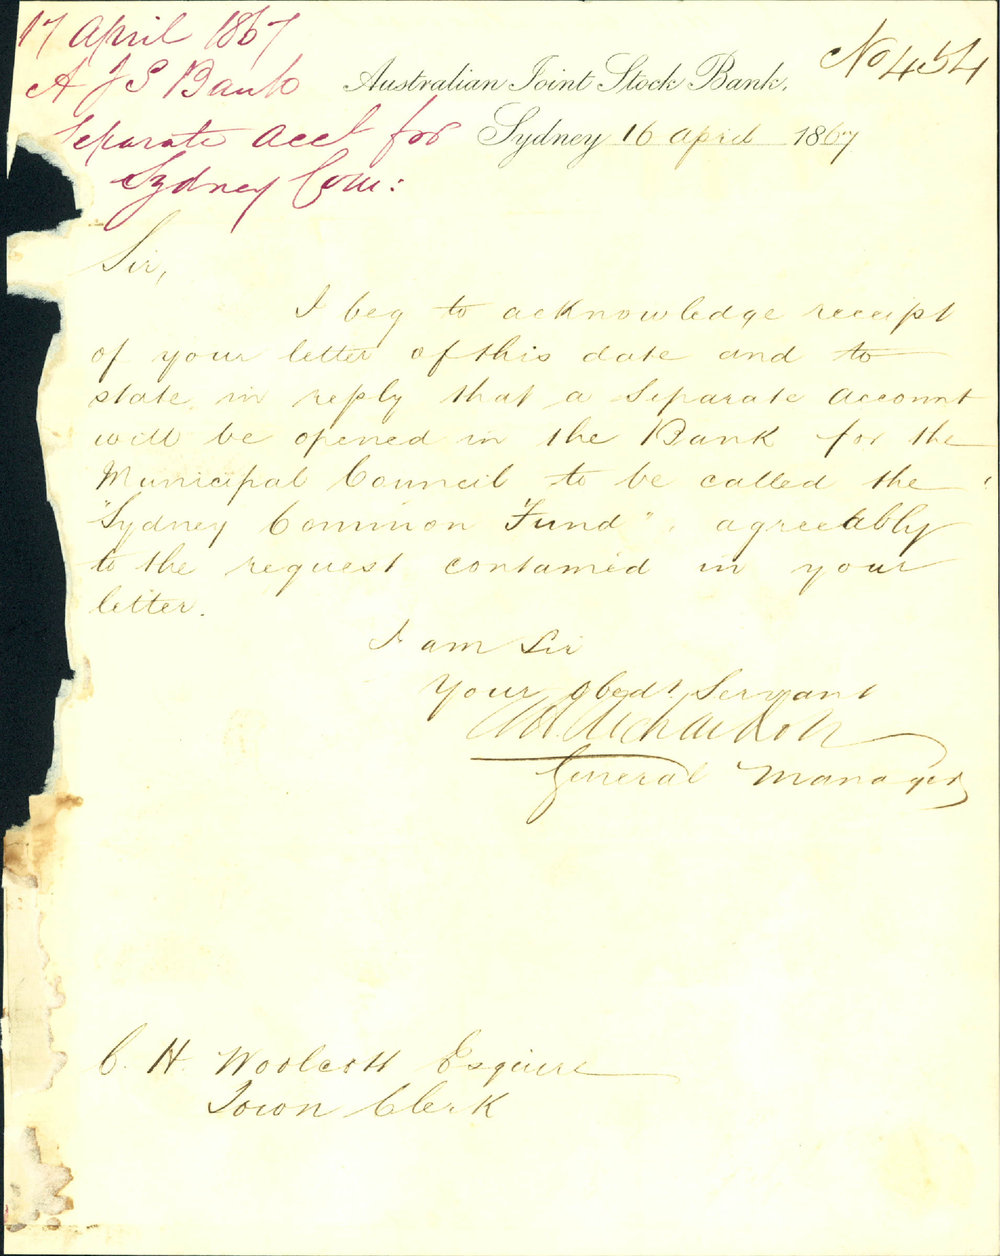 17 April 1867
A J S Bank
Separate acct for
Sydney Com:
No 454
Australian Joint Stock Bank,
Sydney 16 April 1867
Sir,
I beg to acknowledge receipt
of your letter of this date and to
state in reply that a Separate Account
will be opened in the Bank for the
Municipal Council to be called the
"Sydney Common Fund", agreeably
to the request contained in your
letter.
I am Sir
Your obedt Servant
Richardson
General Manager
C. H. Woolcott Esquire
Town Clerk